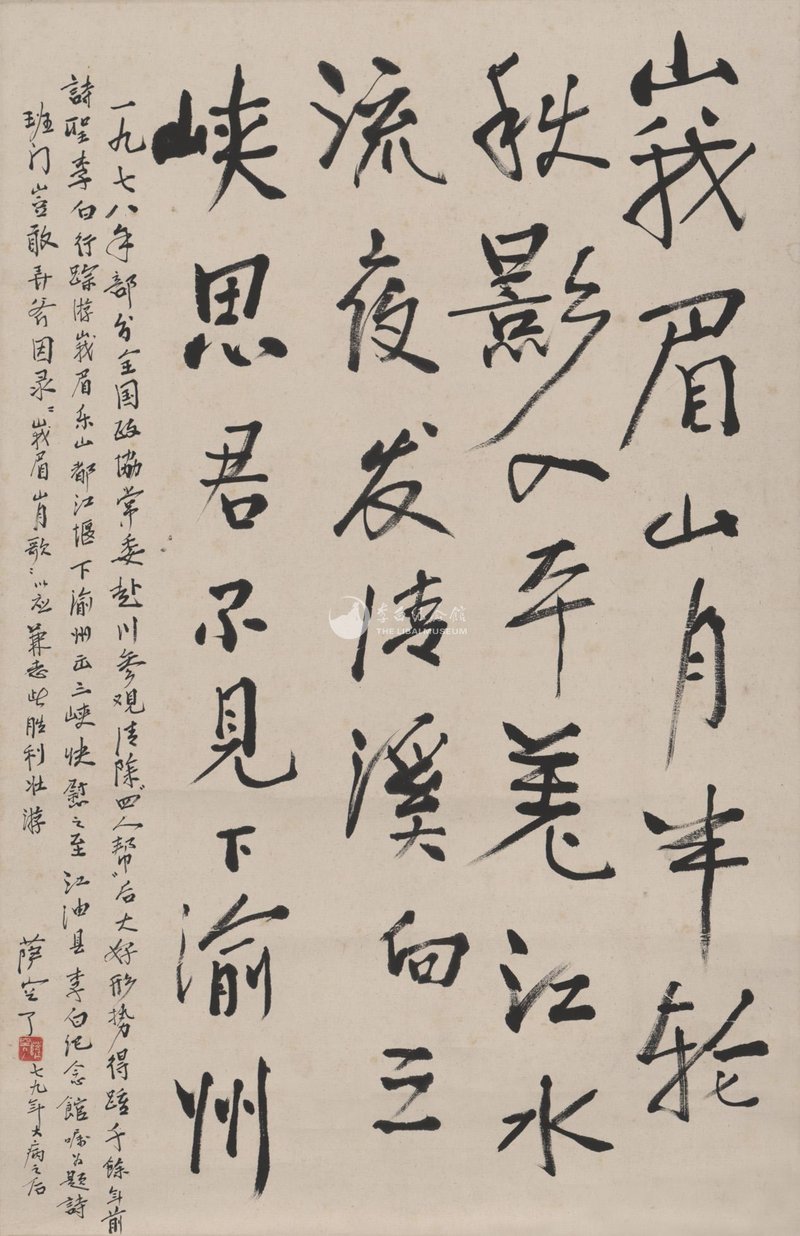 峩眉山月半轮
秋影入平羗江水
流夜发清溪向三
峡思君不見下渝州
一九七八年部分全国政協常委赴川参观清除“四人帮”后大好形势得踏千餘年前
詩聖李白行踪游峩眉乐山都江堰下渝州出三峡快慰之至江油县李白纪念館嘱为題詩
班门豈敢弄斧因录“峩眉山月歌”以应兼志此胜利壮游
萨空了
七九年大病之后
李白纪念館
THE LIBAI MUSEUM